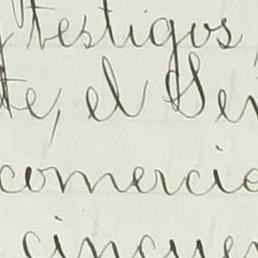 testigos,
te, el Señ
comercio
cincuen